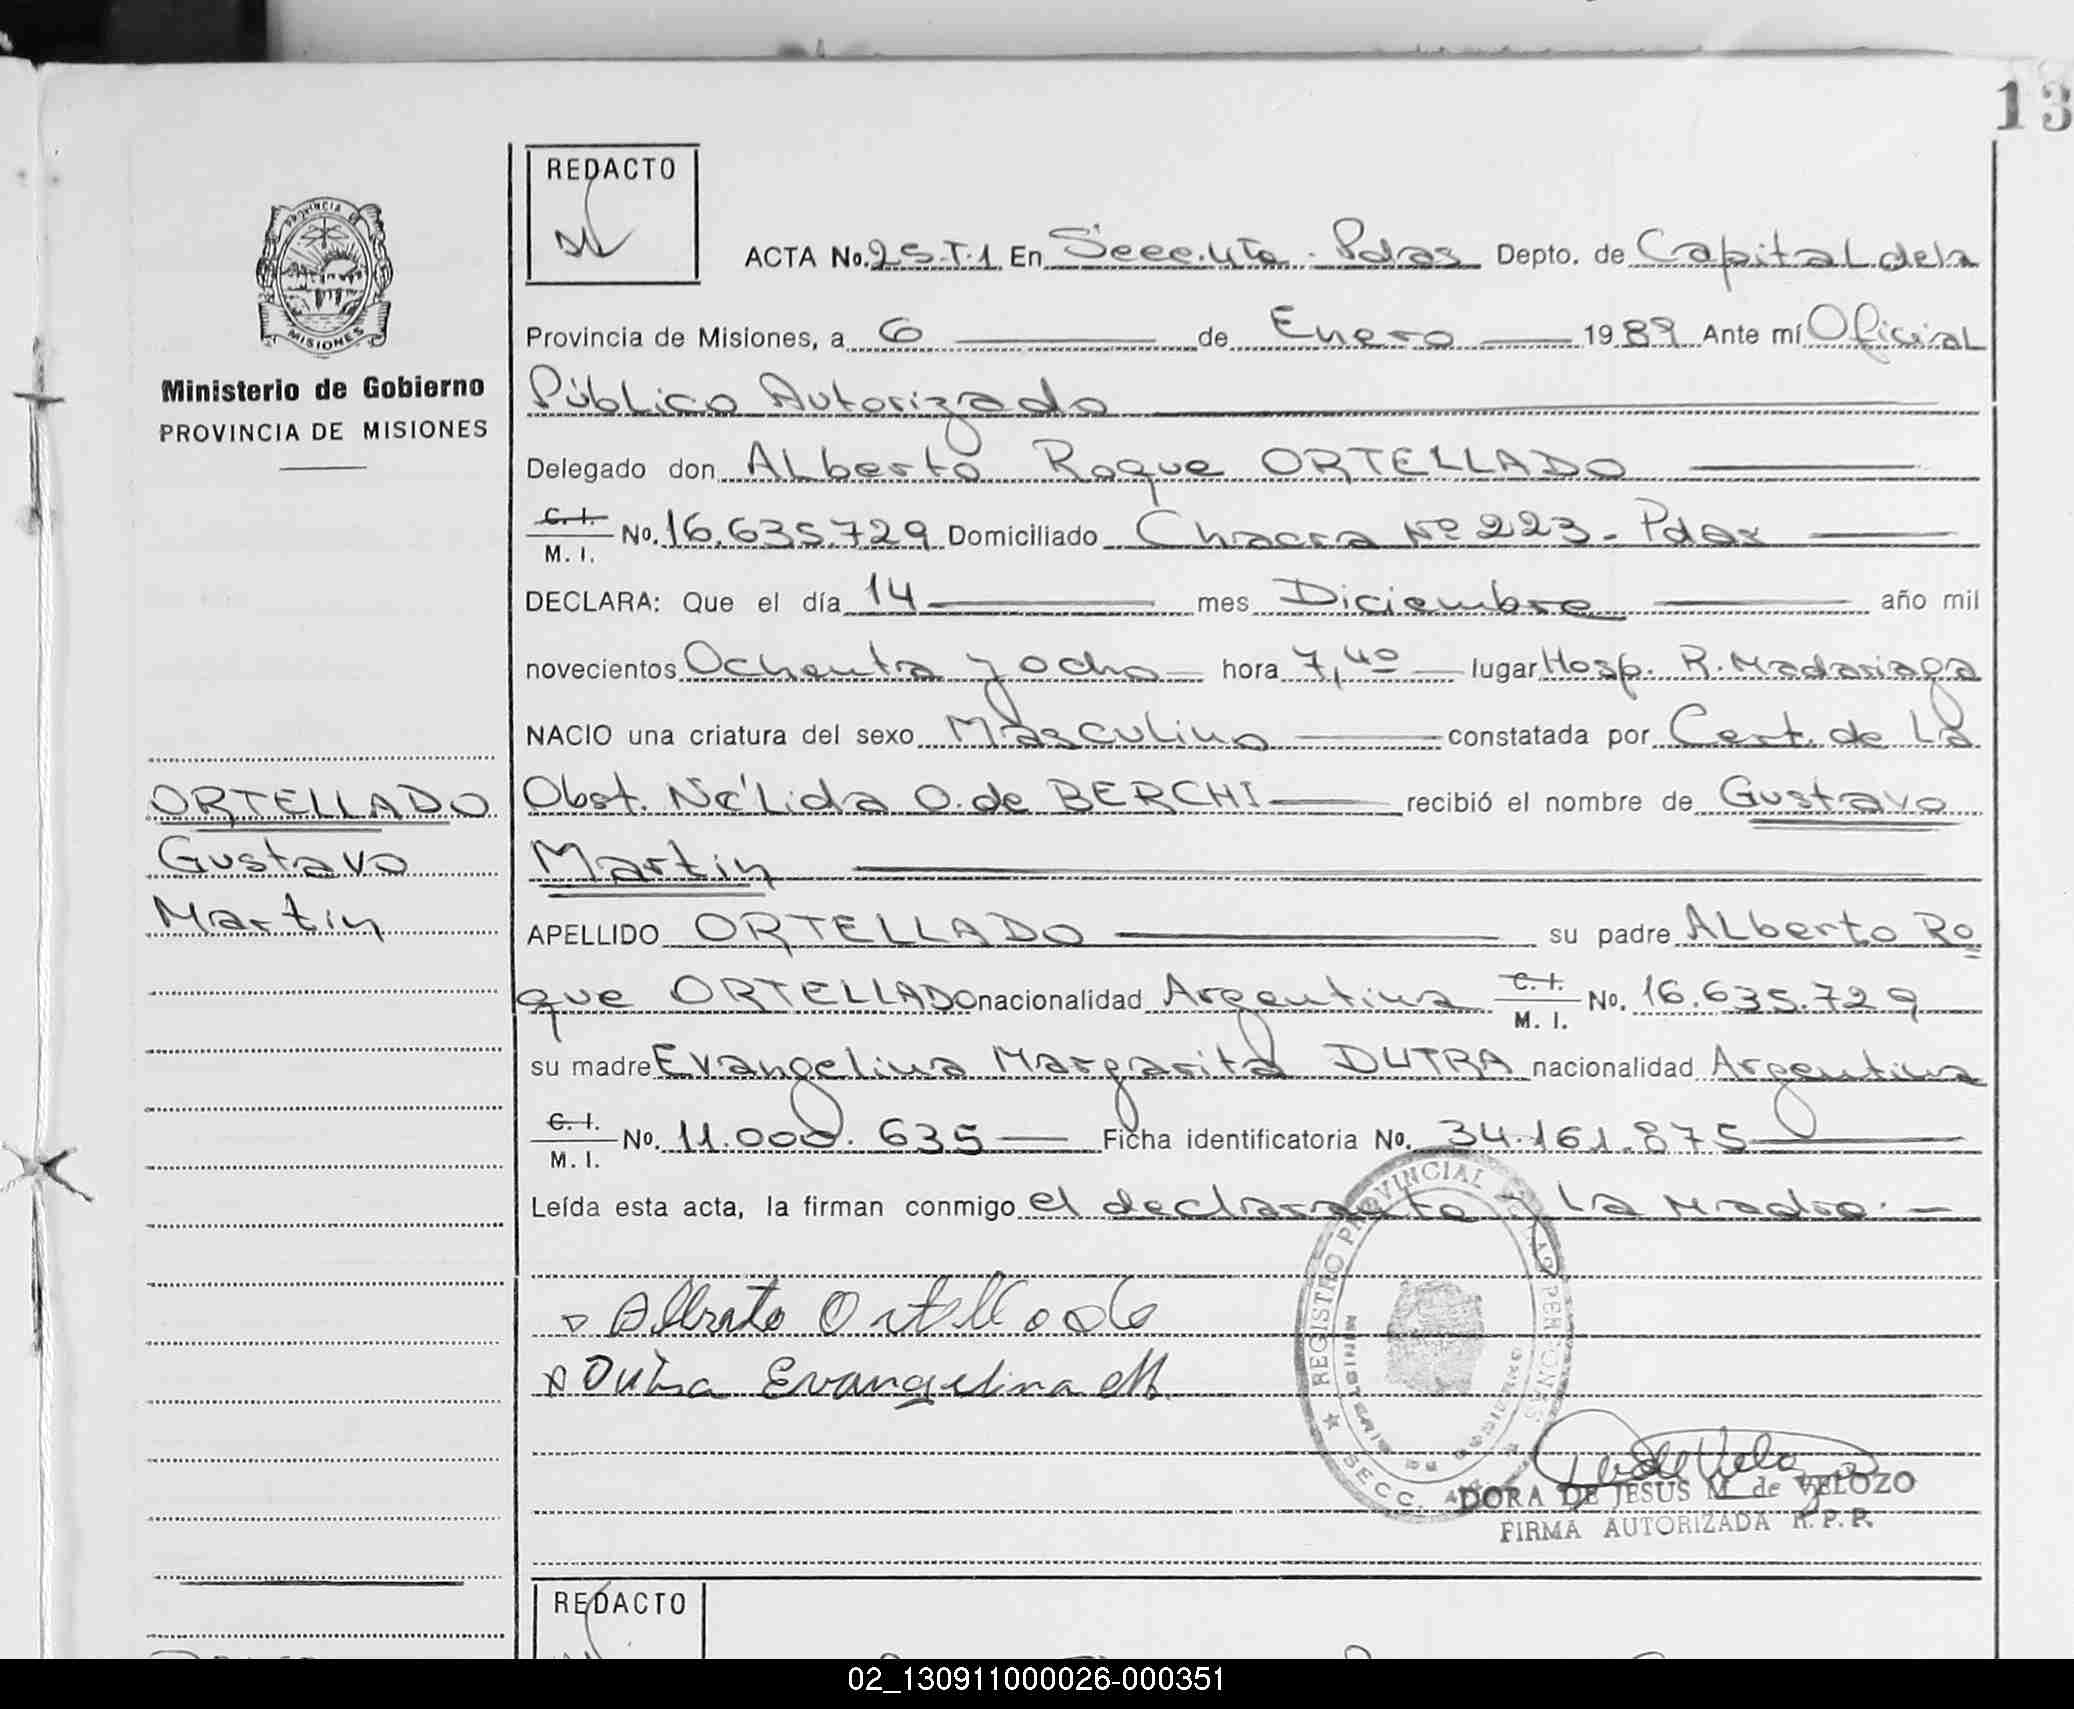 13
REDACTO
PROVINCIA DE
MISIONES
Ministerio de Gobierno
PROVINCIA DE MISIONES
ACTA No. 25-T.1 En Secc. 4ta. Pdas Depto. de Capital de la
Provincia de Misiones, a 6 de Enero 1989 Ante mí Oficial
Público Autorizado
Delegado don Alberto Roque ORTELLADO
C. I.
M. I. No. 16.635.729 Domiciliado Chacra Nº 223 - Pdas
DECLARA: Que el día 14 mes Diciembre año mil
novecientos Ochenta y ocho hora 7,40 lugar Hosp. R. Madariaga
NACIO una criatura del sexo Masculino constatada por Cert. de La
Obst. Nélida O. de BERCHI recibió el nombre de Gustavo
Martin
APELLIDO ORTELLADO su padre Alberto Ro
que ORTELLADO nacionalidad Argentina C. I.
M. I. No. 16.635.729
su madre Evangelina Margarita DUTRA nacionalidad Argentina
C. I.
M. I. No. 11.000.635 Ficha identificatoria No. 34.161.875
Leída esta acta, la firman conmigo el declarante y La Madre.
ORTELLADO
Gustavo
Martin
Alberto Ortellado
Dutra Evangelina M.
REGISTRO PROVINCIAL DE LAS PERSONAS
MINISTERIO DE GOBIERNO
SECC.
DORA DE JESUS M. de VELOZO
FIRMA AUTORIZADA R. P. P.
REDACTO
02_130911000026-000351